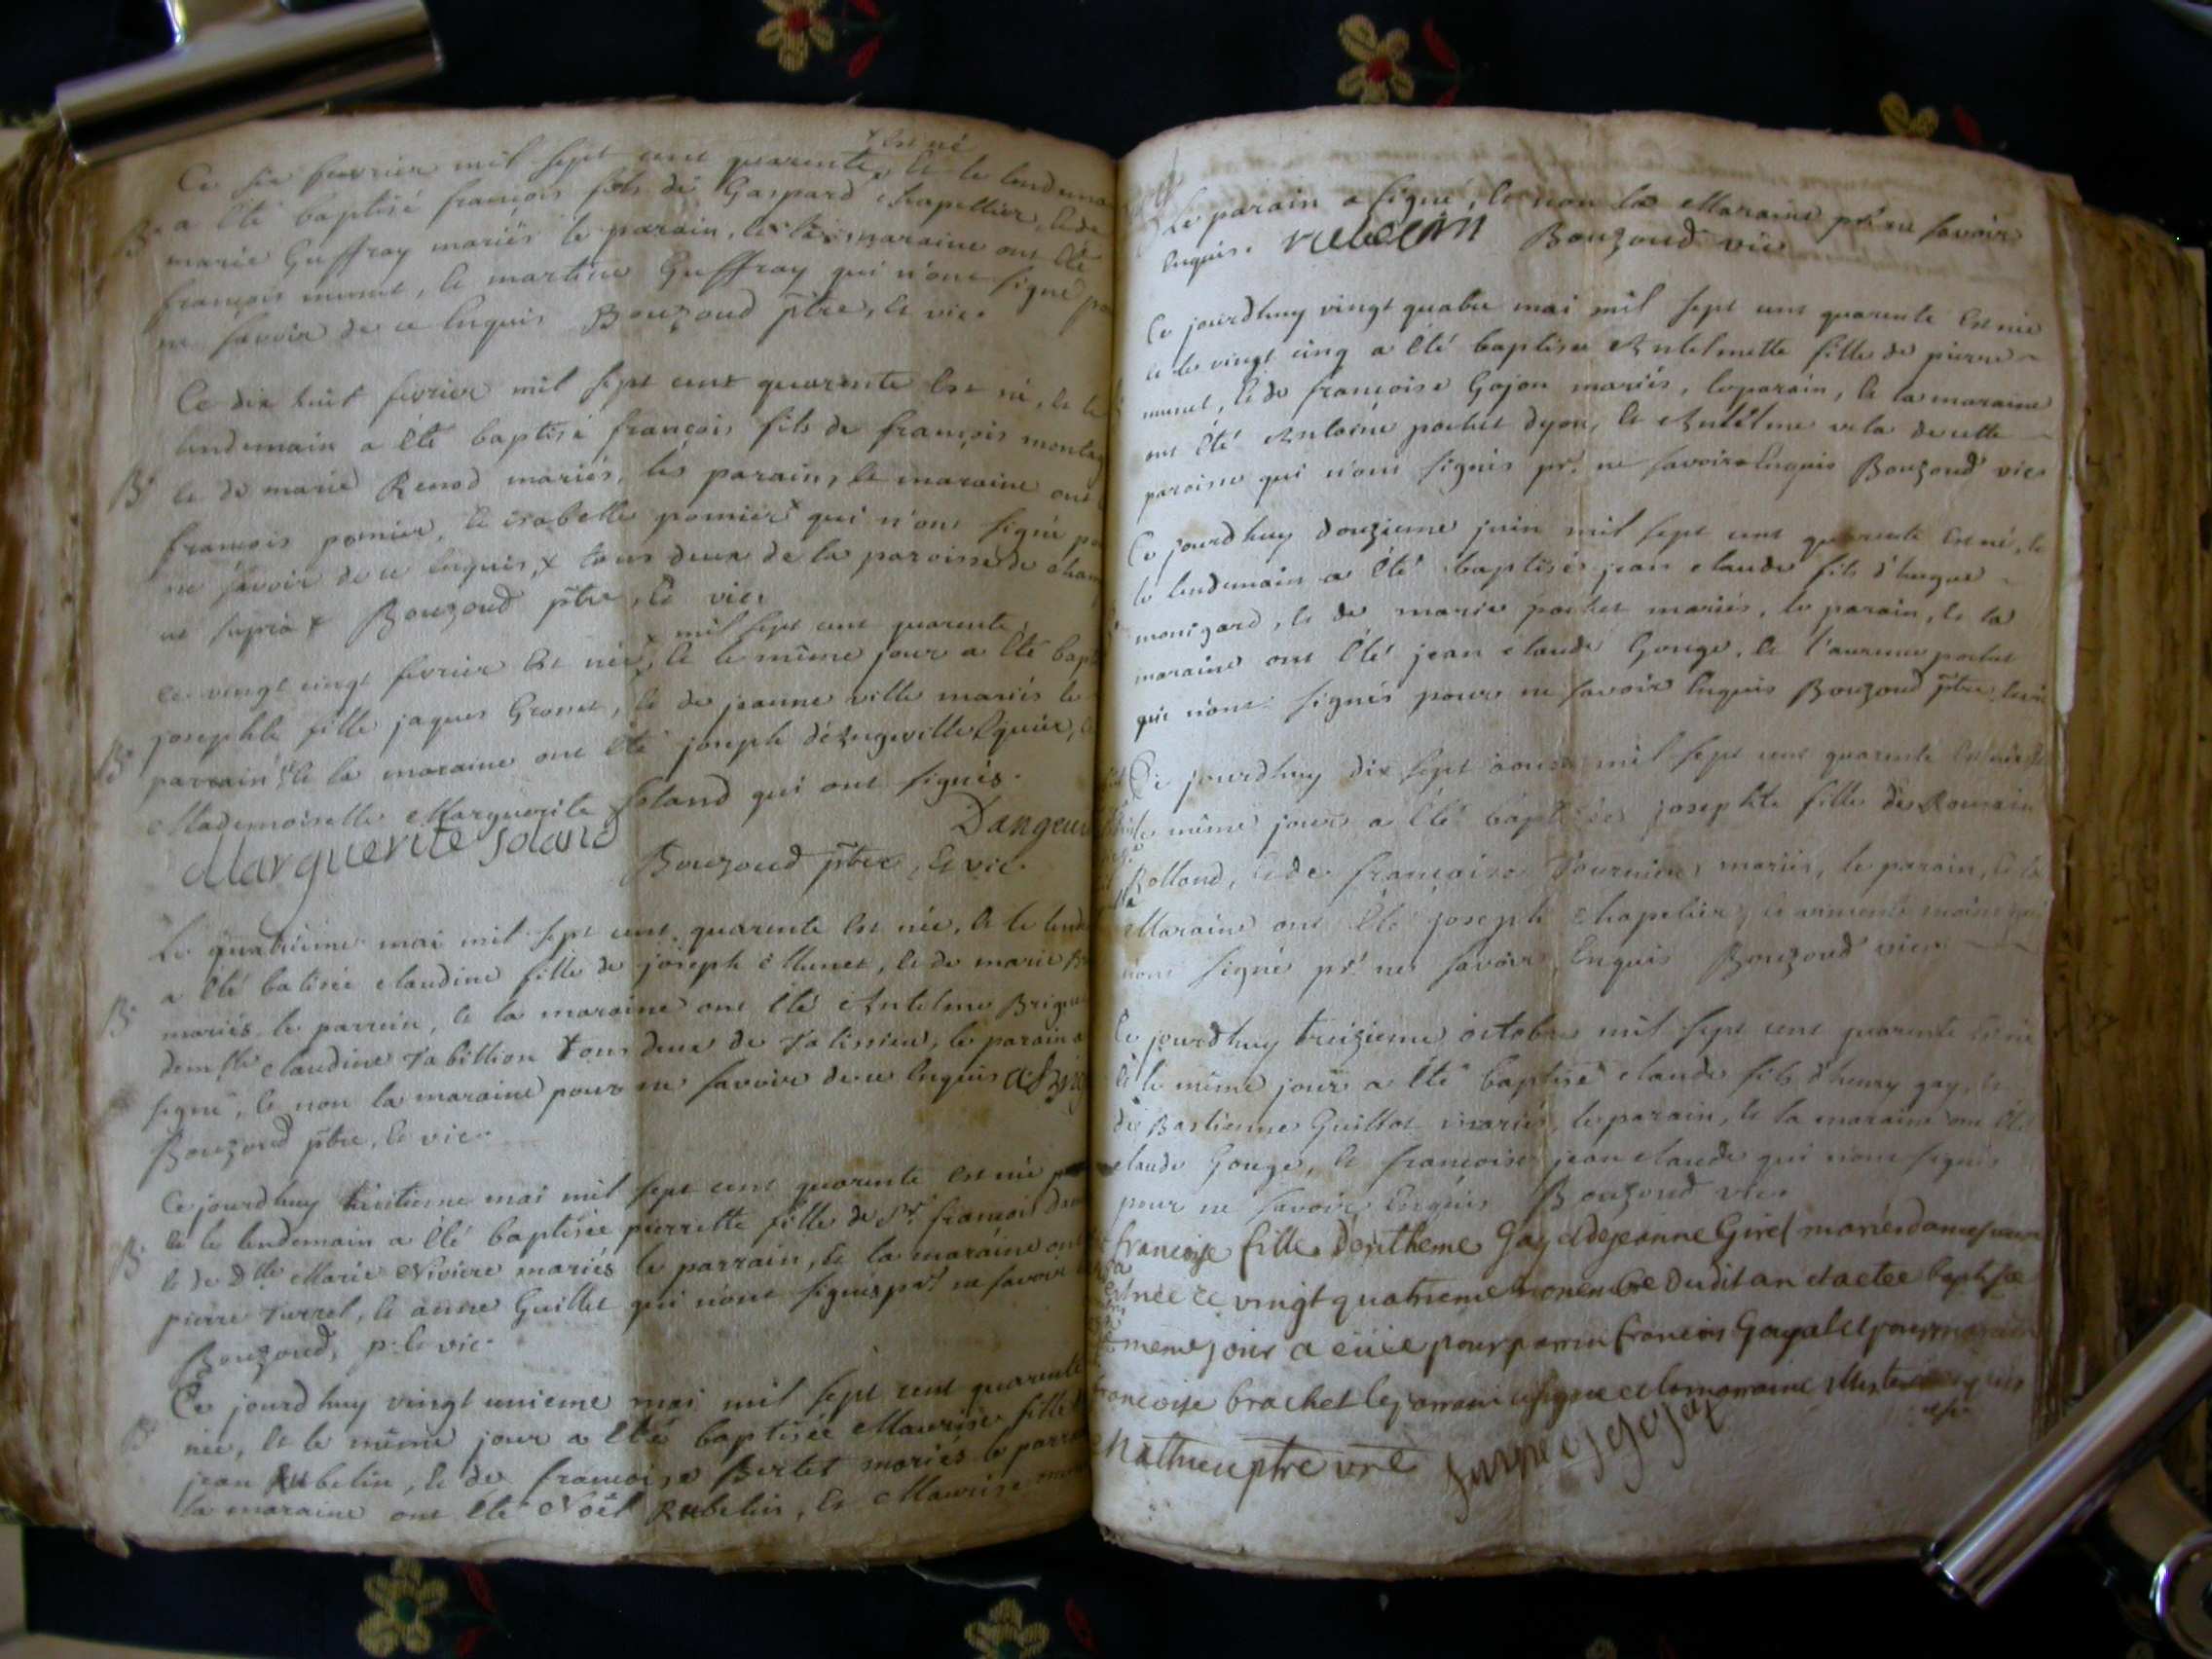 Ce six fevrier mil sept cent quarente, x et le lendemain
x est né
B. a été baptisé françois fils de Gaspard chapellier, et de
marie Guffray mariés le parain, et la maraine ont été
françois munet, et martine Guffray qui n'ont signé po
ne savoir de ce enquis Bouzoud ptre, et vic.
Ce dix huit fevrier mil sept cent quarente est né, et le
lendemain a été baptisé françois fils de françois montag
B. et de marie Renod mariés, les parain, et maraine ont
françois pomier, et isabelle pomier x qui n'ont signé po
ne savoir de ce enquis, x tous deux de la paroisse de cham
ut supra x Bouzoud ptre, et vic.
x mil sept cent quarente,
ce vingt cinq fevrier est née, x et le même jour a été bapt
josephte fille jaques Gronet, et de jeanne ville mariés le
B. parrain et la maraine ont été joseph dézugeville Equier, et
Mademoiselle Marguerite soland qui ont signés.
Marguerite soland Dangeu
Bouzoud ptre, et vic.
Le quatrieme mai mil sept cent quarente est née, et le lend
a été batisée claudine fille de joseph Munet, et de marie
B. mariés le parrein, et la maraine ont été Antelme Brigu
demlle claudine tabillion tous deux de talissieu, le parain a
signé, et non la maraine pour ne savoir de ce enquis
Bouzoud ptre, et vic.
Ce jourdhuy huitieme mai mil sept cent quarente est née
et le lendemain a été baptisée pierrette fille de Sr. francois
B. et de Dlle Marie Niviere mariés le parrain, et la maraine ont
pierre turrel, et anne Guillet qui n'ont signés pr. ne savoir
Bouzoud, p. et vic.
Ce jourd huy vingt unieme mai mil sept cent quarente
B. née, et le même jour a été baptisée Maurise fille
jean Rubelin, et de francoise Bertet mariés le parra
la maraine ont été Noël Rubelin, et Maurise
Le parain a signé, et non la Maraine pr. ne savoir
Enquis. rubelin Bouzoud vic
Ce jourdhuy vingt quatre mai mil sept cent quarente Est née
et le vingt cinq a été baptisée Antelmette fille de pierre
munet, et de francoise Gojon mariés, le parain, et la maraine
ont été Antoine pochet dyon, et Antelme vela de cette
paroisse qui n'ont signés pr. ne savoir Enquis Bouzoud vic
Ce jourd huy douzieme juin mil sept cent quarente Est né, et
le lendemain a été baptisé jean claude fils d'hugue
monigard, et de marie pochet mariés, le parain, et la
maraine ont été jean claude Gonge, et l'aurence pochet
qui n'ont signés pour ne savoir Enquis Bouzoud ptre, et vic
Ce jourdhuy dix sept aoust mil sept cent quarente est née et
le même jour a été baptisée josephte fille de Romain
Rolland, et de francoise Fournier, mariés, le parain, et la
Maraine ont été joseph Chapelier, et
n'ont signé pr. ne savoir Enquis Bouzoud vic.
Ce jourdhuy treizieme octobre mil sept cent quarente Est né
et le même jour a été baptisé claude fils d'henry gay, et
de Bastienne Guillot mariés, le parain, et la maraine ont été
claude Gonge, et francoise jean claude qui n'ont signés
pour ne savoir Enquis Bouzoud vic.
francoise fille Gay et de jeanne Girel mariés
est née ce vingt quatrieme novembre dudit an et a etee baptisee
meme jour a eue pour parrin francois et pour
francoise brachet le parrain
Mathieu ptre vre